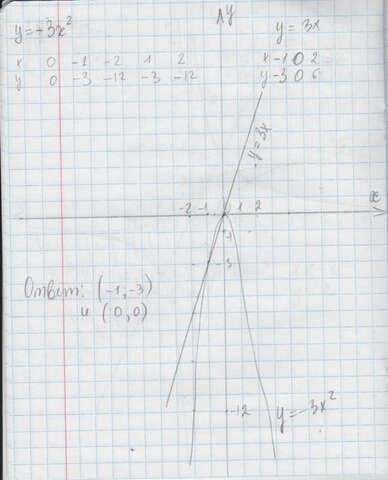 y=-3x²
x 0 -1 -2 1 2
y 0 -3 -12 -3 -12
y
y = 3x
x -1 0 2
y -3 0 6
y=3x
x
-2 -1 1 2
-3
Ответ: (-1,-3)
и (0,0)
-12
y=-3x²